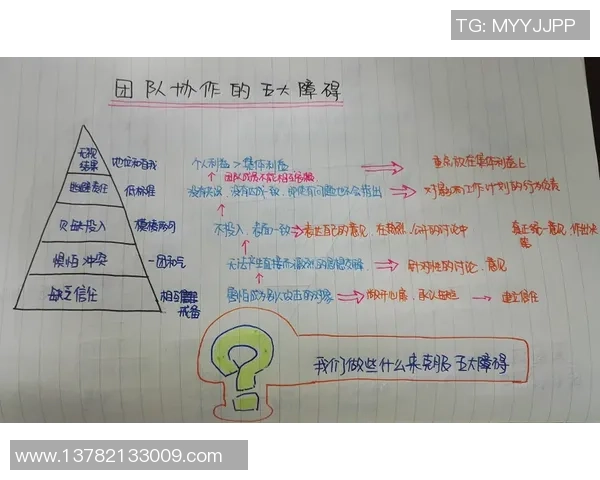 TG: MYYJJPP
团队协作的五大障碍
无视结果 地位和自我 个人利益>集体利益 重点放在集体利益上
逃避责任 低标准
团队成员不能相互
没有共识，没有达成一致，即使有问题也不会指出 对影响工作计划的行为负责
欠缺投入 模棱两可 不投入，表面一致 表达自己的意见，在 公开的讨论中 真正统一意见，作出决策
惧怕冲突 一团和气 无法产生直接而激烈的思想交锋 针对性的讨论，意见
缺乏信任 相互戒备 害怕成为别人攻击的对象 敞开心扉，承认 建立信任
我们做些什么来克服五大障碍
www.13782133009.com